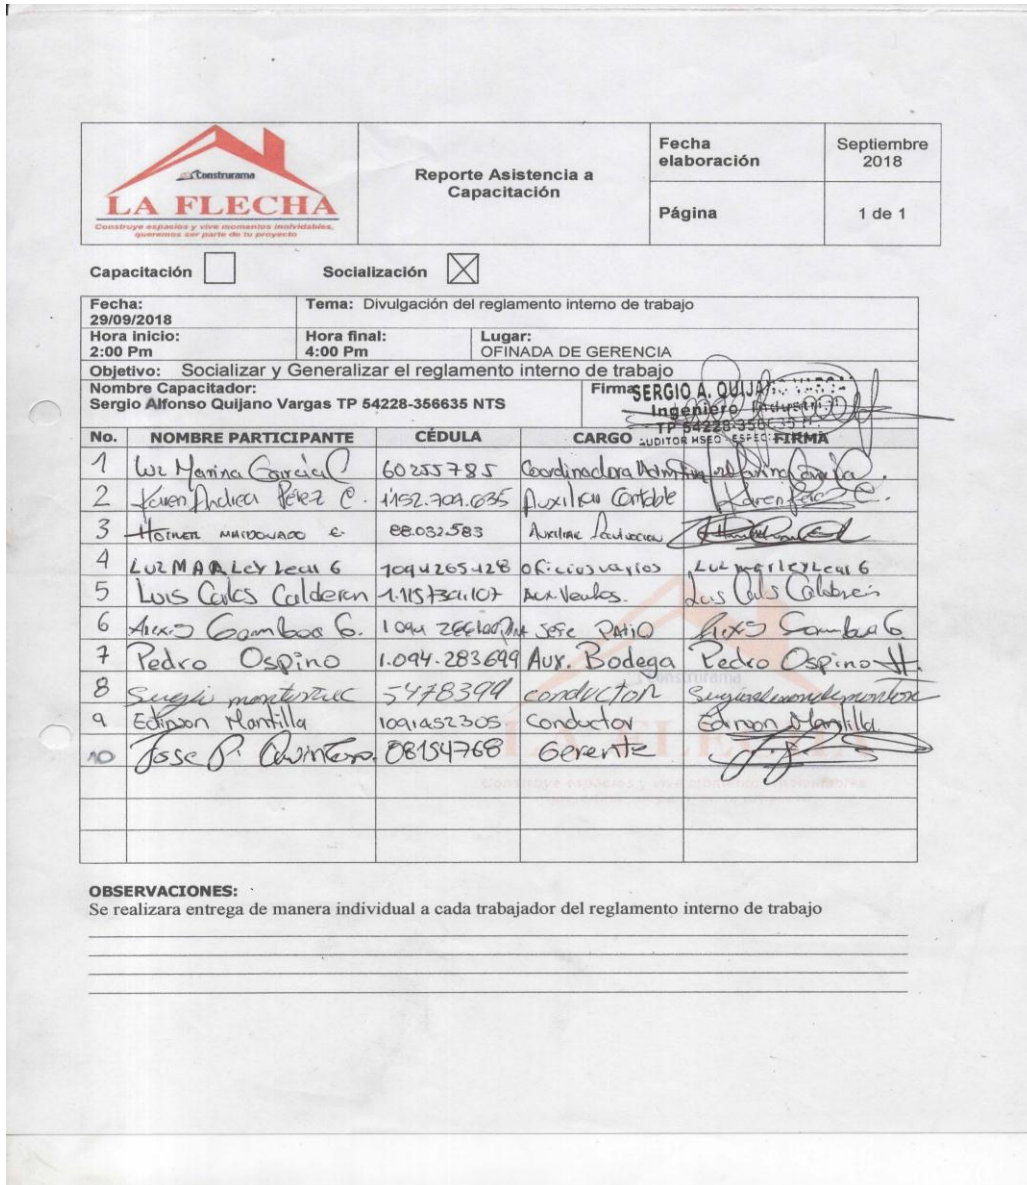 Construrama
LA FLECHA
Construye espacios y vive momentos inolvidables,
queremos ser parte de tu proyecto
Reporte Asistencia a
Capacitación
Fecha
elaboración
Septiembre
2018
Página
1 de 1
Capacitación
Socialización
Fecha:
29/09/2018
Tema: Divulgación del reglamento interno de trabajo
Hora inicio:
2:00 Pm
Hora final:
4:00 Pm
Lugar:
OFINADA DE GERENCIA
Objetivo: Socializar y Generalizar el reglamento interno de trabajo
Nombre Capacitador:
Sergio Alfonso Quijano Vargas TP 54228-356635 NTS
Firma
SERGIO A. QUIJANO VARGAS
Ingeniero Industrial
TP 54228-356635
AUDITOR HSEQ
No. NOMBRE PARTICIPANTE CÉDULA CARGO FIRMA
1 Luz Marina García C 60255785 Coordinadora Marina García
2 Karen Andrea Pérez C. 1152.709.635 Auxiliar Contable Karen Pérez C.
3 HEINER MALDONADO E. 88.032.583 Auxiliar
4 LUZ MARLEY Leal G 1094265428 oficios varios Luz marley Leal G
5 Luis Carlos Calderon 1.115731.107 Aux. Ventas. Luis Carlos Calderon
6 Alexis Gamboa G. 1094 Jefe PATIO Alexis Gamboa G.
7 Pedro Ospino 1.094.283699 Aux. Bodega Pedro Ospino H.
8 5478399 conductor
9 Edinson Mantilla 1091452305 Conductor Edinson Mantilla
10 Jose Quintero. 08154768 Gerente
Construrama
LA FLECHA
OBSERVACIONES:
Se realizara entrega de manera individual a cada trabajador del reglamento interno de trabajo